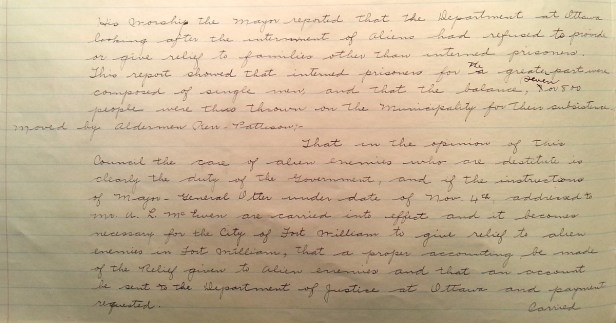 His Morship the Mayor reported that the Department at Ottawa
looking after the internment of Aliens had refused to provide
or give relief to families other than interned prisoners.
This report showed that interned prisoners for the greater part were
composed of single men, and that the balance, or 800
people were thus thrown on the Municipality for their subsistence
moved by Aldermen - Pattison:-
That in the opinion of this
Council the case of alien enemies who are destitute is
clearly the duty of the Government, and if the instructions
of Major-General Otter under date of Nov. 4th addressed to
Mr. McEwen are carried into effect and it becomes
necessary for the City of Fort William to give relief to alien
enemies in Fort William, that a proper accounting be made
of the Relief given to alien enemies and that an account
be sent to the Department of Justice at Ottawa and payment
requested. Carried